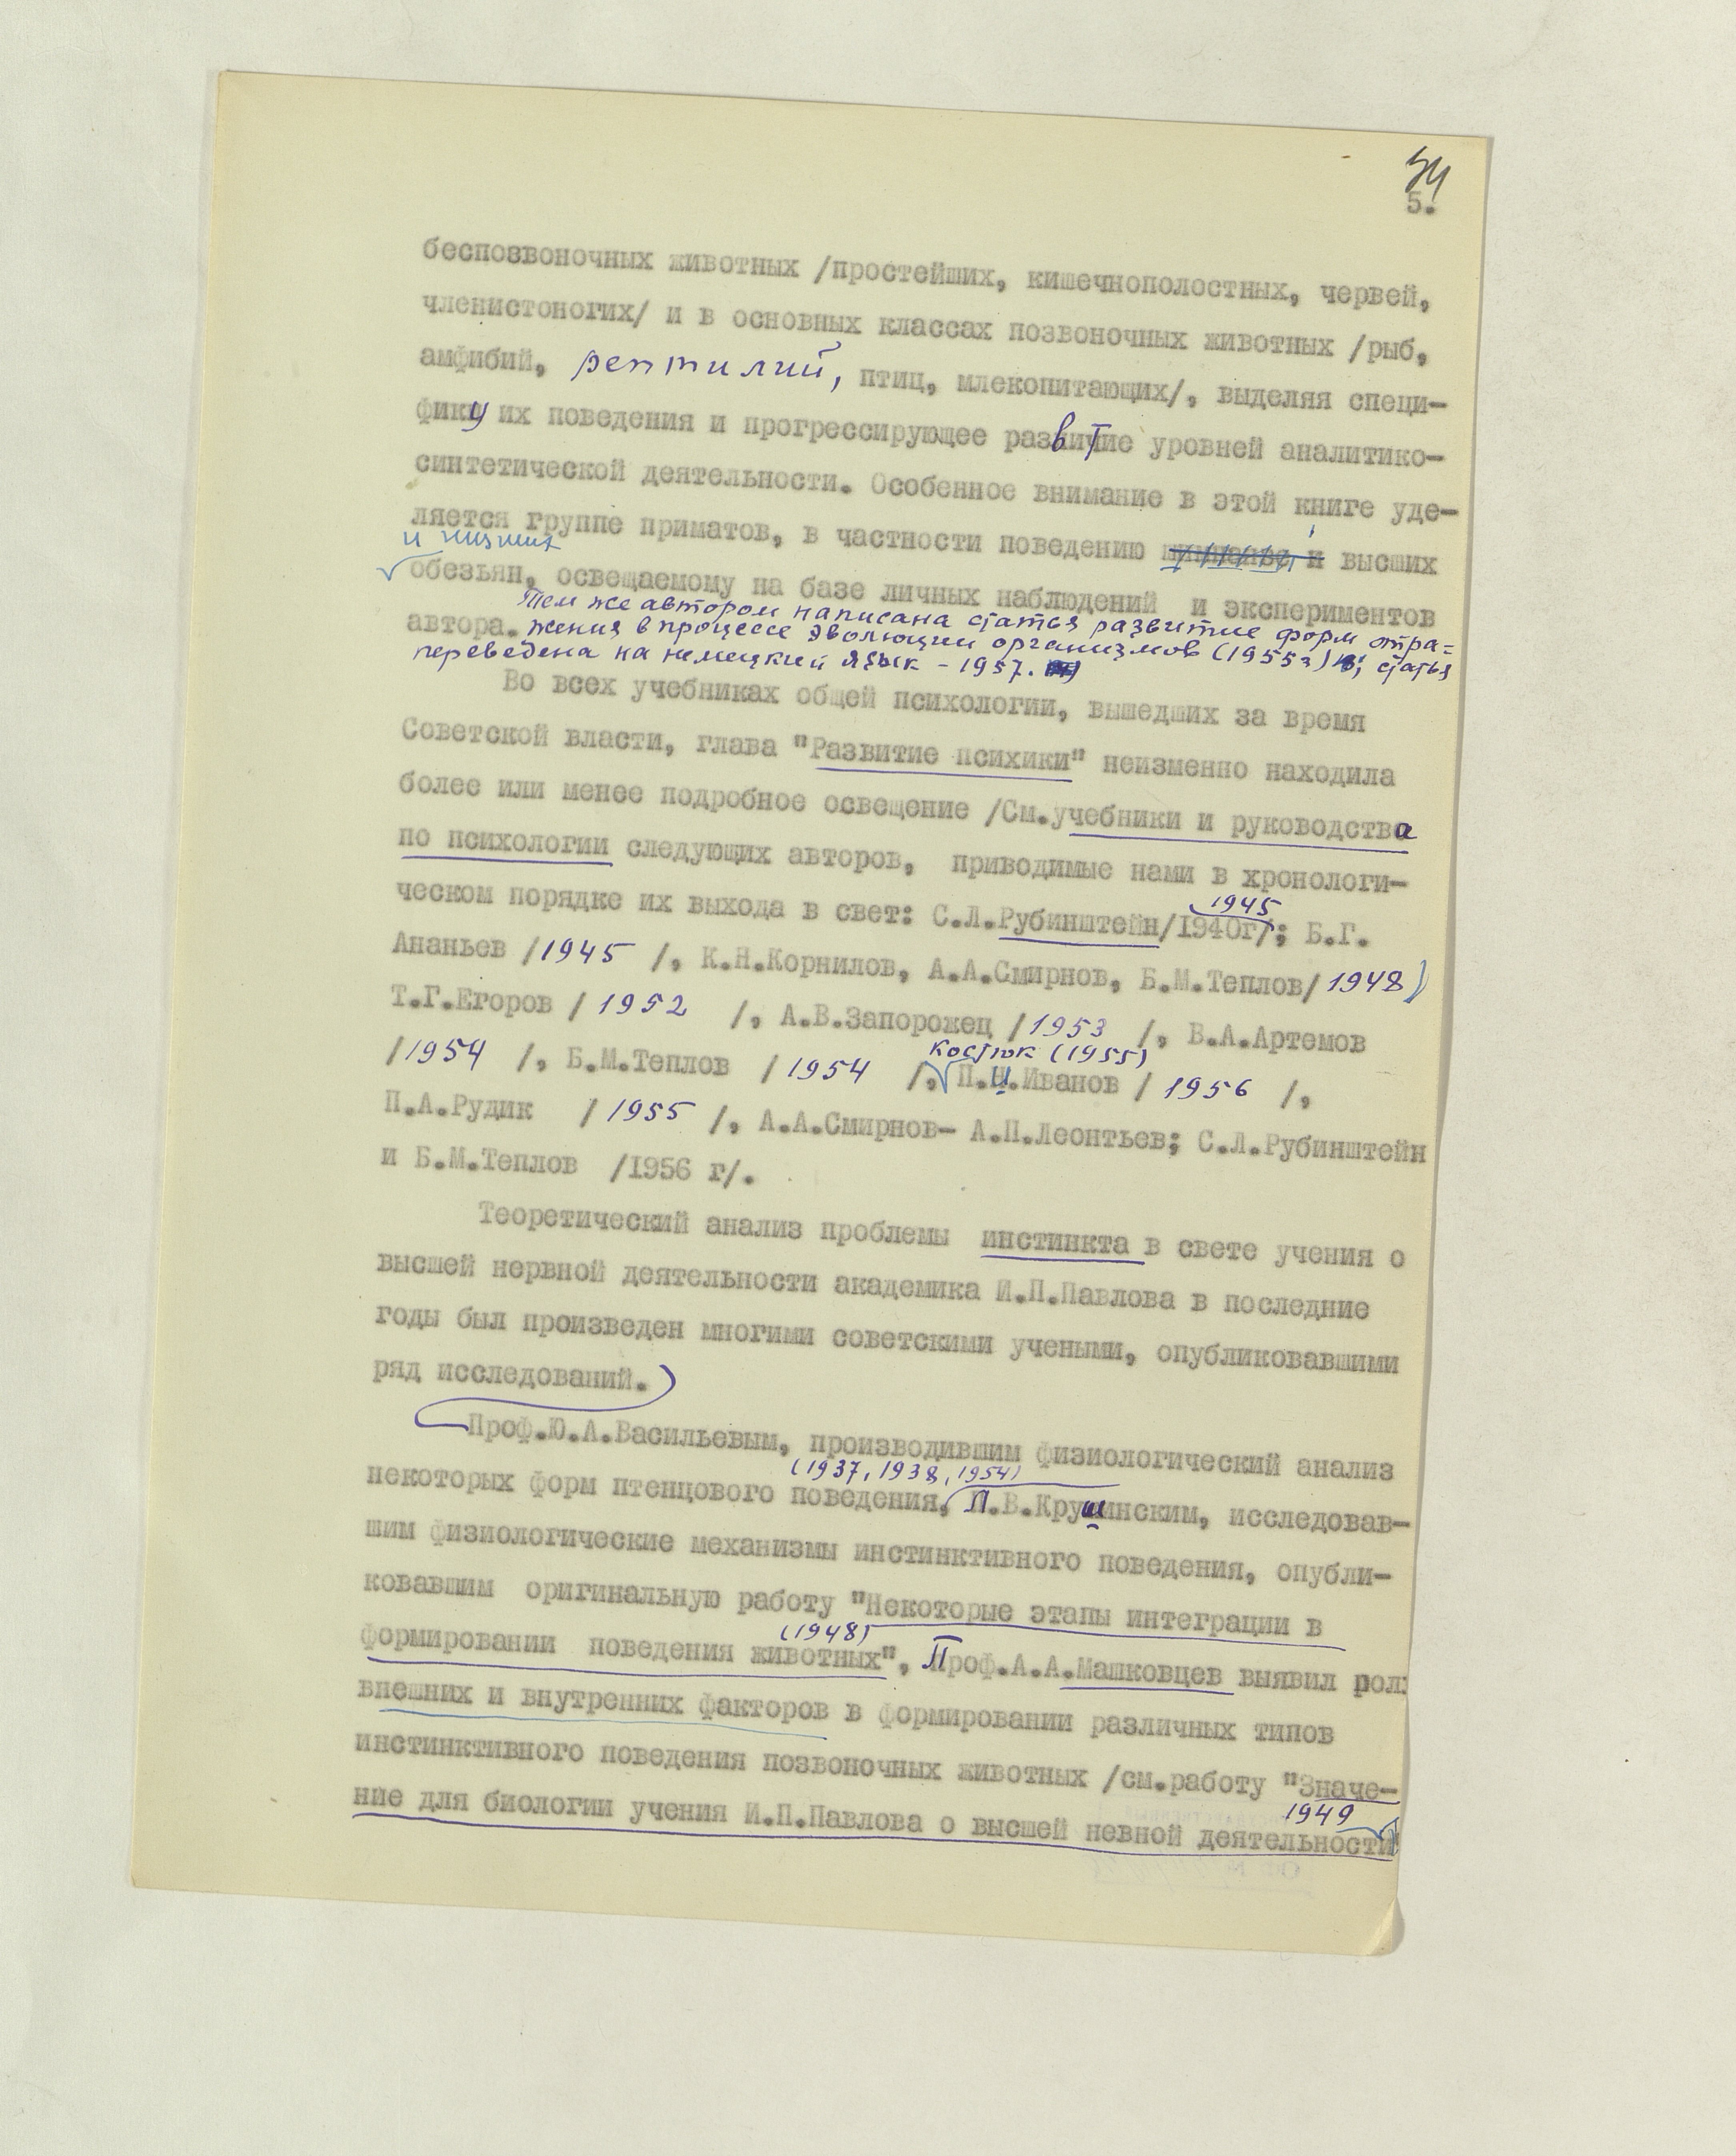 54
5.
беспозвоночных животных /простейших, кишечнополостных, червей,
членистоногих/ и в основных классах позвоночных животных /рыб,
амфибий, рептилий, птиц, млекопитающих/, выделяя специ-
фику их поведения и прогрессирующее развитие уровней аналитико-
синтетической деятельности. Особенное внимание в этой книге уде-
ляется группе приматов, в частности поведению и высших
и низших
обезьян, освещаемому на базе личных наблюдений и экспериментов
автора. Тем же автором написана статья развитие форм отра=
жения в процессе эволюции организмов (1955г) статья
переведена на немецкий язык - 1957.
Во всех учебниках общей психологии, вышедших за время
Советской власти, глава "Развитие психики" неизменно находила
более или менее подробное освещение /См.учебники и руководства
по психологии следующих авторов, приводимые нами в хронологи-
ческом порядке их выхода в свет: С.Л.Рубинштейн/1940г/; Б.Г.
1945
Ананьев /1945 /, К.Н.Корнилов, А.А.Смирнов, Б.М.Теплов/ 1948)
Т.Г.Егоров / 1952 /, А.В.Запорожец /1953 /, В.А.Артемов
/1954 /, Б.М.Теплов / 1954 /, П.И.Иванов / 1956 /,
Костюк (1955)
П.А.Рудик /1955 /, А.А.Смирнов- А.Н.Леонтьев; С.Л.Рубинштейн
и Б.М.Теплов /1956 г/.
Теоретический анализ проблемы инстинкта в свете учения о
высшей нервной деятельности академика И.П.Павлова в последние
годы был произведен многими советскими учеными, опубликовавшими
ряд исследований.
Проф.Ю.А.Васильевым, производившим физиологический анализ
некоторых форм птенцового поведения, Л.В.Крушинским, исследовав-
(1937, 1938, 1954)
шим физиологические механизмы инстинктивного поведения, опубли-
ковавшим оригинальную работу "Некоторые этапы интеграции в
формировании поведения животных", Проф.А.А.Машковцев выявил рол
(1948)
внешних и внутренних факторов в формировании различных типов
инстинктивного поведения позвоночных животных /см.работу "Значе-
ние для биологии учения И.П.Павлова о высшей невной деятельности"
1949